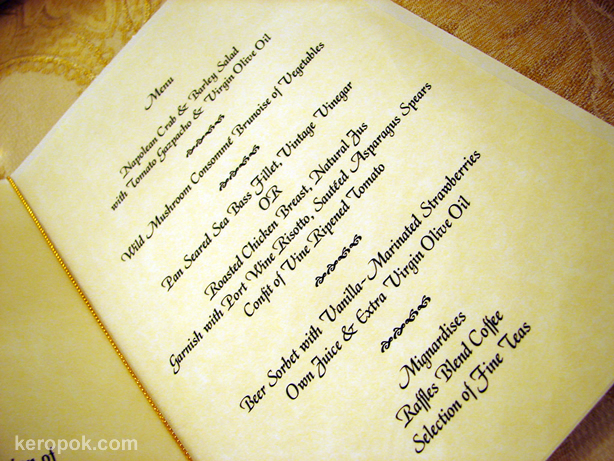 Menu
Napolean Crab & Barley Salad
with Tomato Gazpacho & Virgin Olive Oil
Wild Mushroom Consommé Brunoise of Vegetables
Pan Seared Sea Bass Fillet, Vintage Vinegar
OR
Roasted Chicken Breast, Natural Jus
Garnish with Port Wine Risotto, Sautéed Asparagus Spears
Confit of Vine Ripened Tomato
Beer Sorbet with Vanilla-Marinated Strawberries
Own Juice & Extra Virgin Olive Oil
Mignardises
Raffles Blend Coffee
Selection of Fine Teas
of
keropok.com